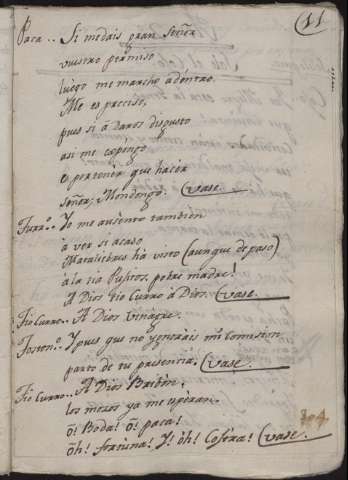 11
Paca.. Si me dais gran Señor
vuestro permiso
luego me marcho adentro.
Me es preciso,
pues si á Daros disgusto
asi me expongo
o por tener que hacér
Señor; Mondongo. (vase.
Yo me ausento tambien
á ver si acaso
ha visto (aunque de paso)
á la tia Pujitos, pobre madre!
A Dios tio Curro á Dios. (vase.
Tio Curro.. A Dios Vinagre.
Y pues que no ygnorais mi comision
parto de tu presencia. (vase.
Tio Curro.. A Dios Baibén.
los mozos ya me espéran.
ó! Boda! ó! paca!
Oh! fortuna! Y! óh! (vase.
304